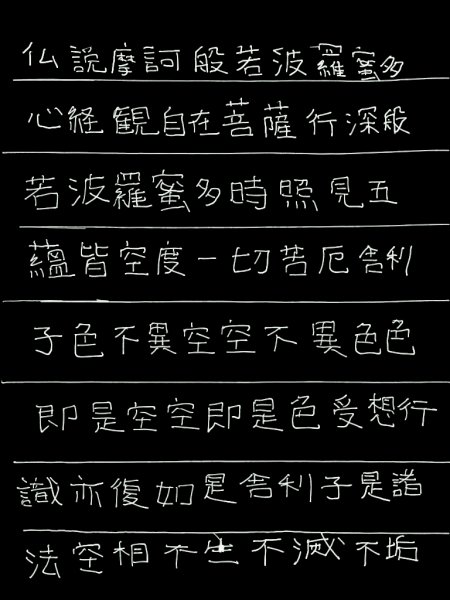 仏説摩訶般若波羅蜜多
心経観自在菩薩行深般
若波羅蜜多時照見五
蘊皆空度一切苦厄舎利
子色不異空空不異色色
即是空空即是色受想行
識亦復如是舎利子是諸
法空相不生不滅不垢